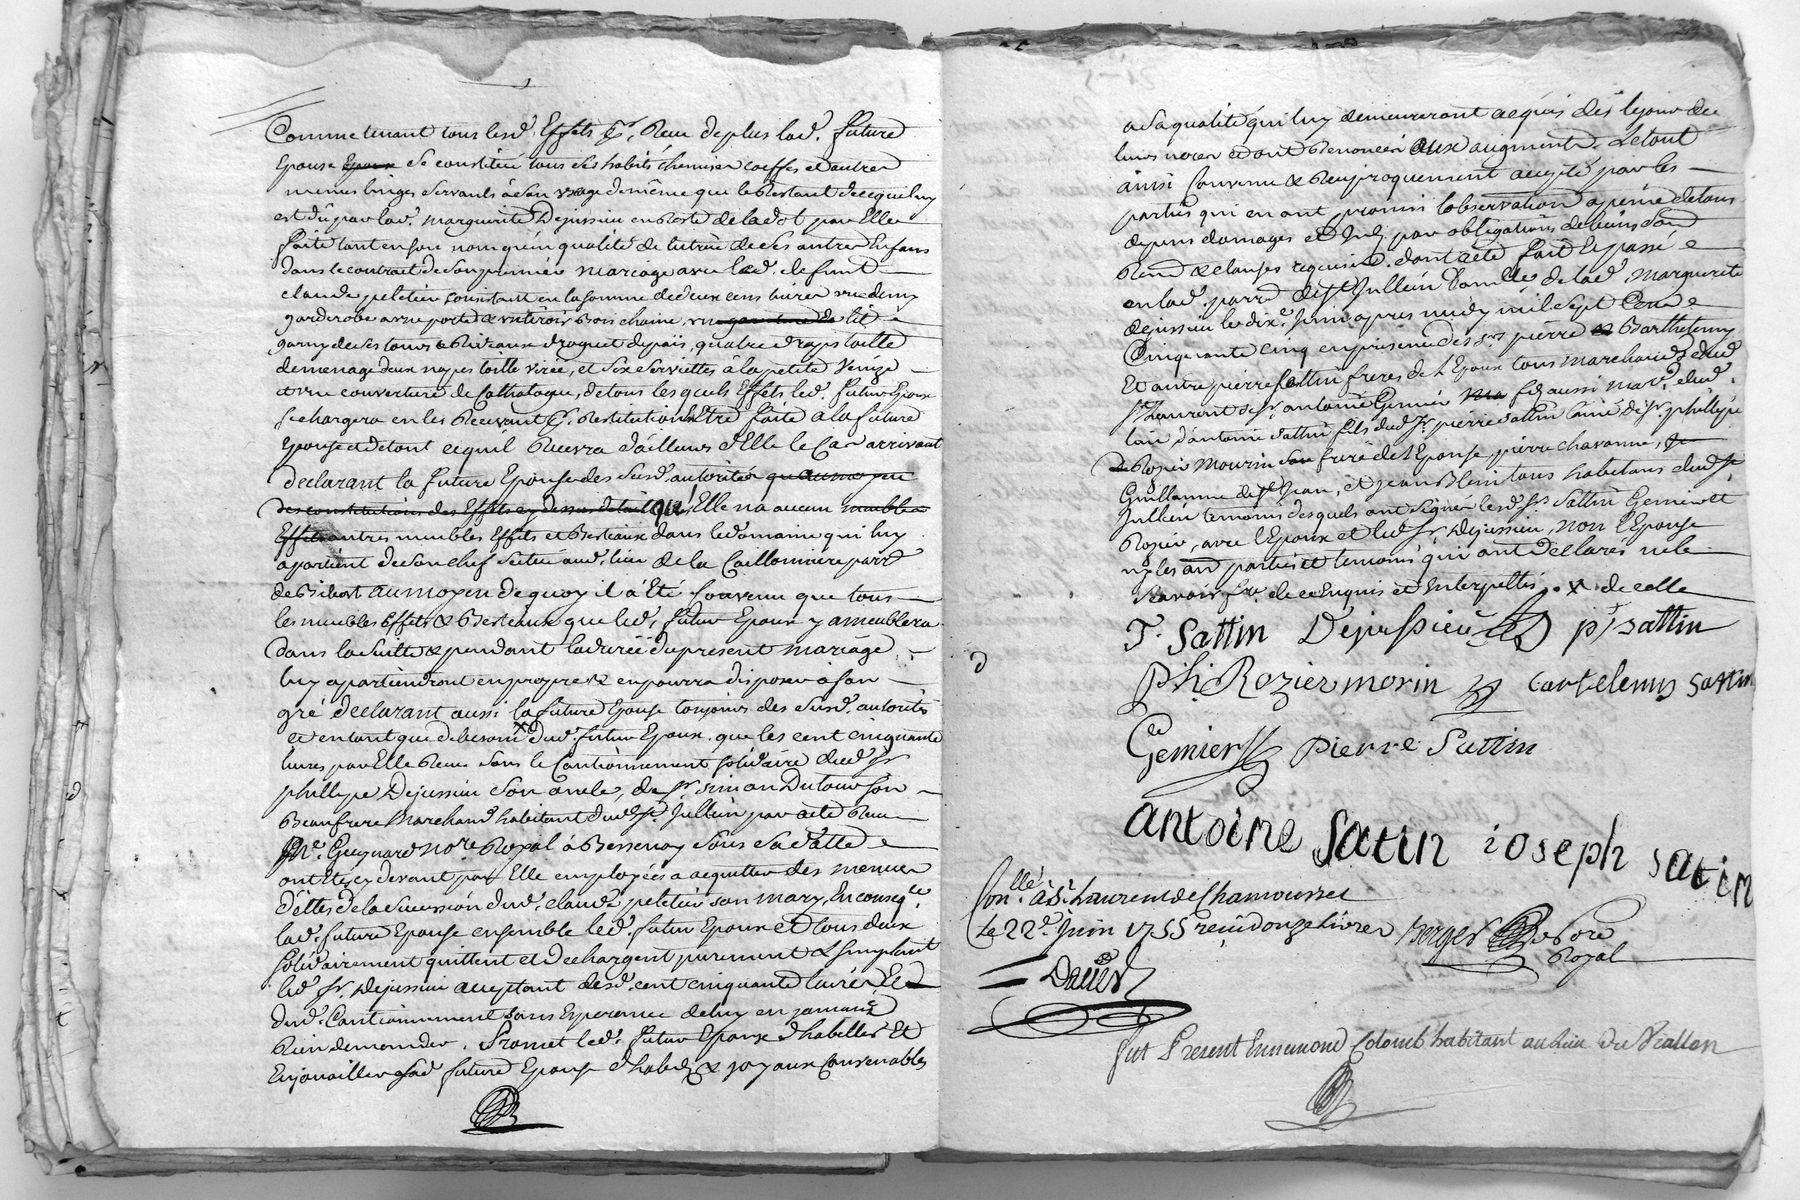 Comme tenant tous lesd. Effets &c. Reçue de plus lad. future
Epouse Epoux se constitüe tous ses habits chemises coeffes et autres
menus linges servants à son usage de même que le Restant de ce qui luy
est dû par lad. marguerite Dejussieu en Reste de la dot par Elle
faite tant en son nom qu'en qualité de tutrice de ses autres Enfans
dans le contract de son premier mariage avec led. defunt
claude peletier consistant en la somme de deux cens livres une demy
garderobe a une porte & un tiroir Bois chaine, un garniture de lit
garny de ses tours & Rideaux droguet de païs, quatre draps toille
de menage deux napes toille virée, et six serviettes à la petite Venize
et une couverture de Cathalogne, de tous lesquels Effets led. futur Epoux
se chargera en les Recevant pr. Restitution Etre faite à la future
Epouse et de tout ce qu'il Recevra d'ailleurs d'Elle le Cas arrivant
declarant la future Epouse des susd. autorités qu'au moyen
des constitutions des Effets cy dessus detail qu'Elle n'a aucun meubles
Effets autres meubles Effets et Bestiaux dans le domaine qui luy
apartient de son chef scitué aud. lieu de la Caillonniere parr.
de Bibost au moyen de quoy il a été Convenu que tous
les meubles Effets & Bestiaux que led. futur Epoux y ameublera
Dans la Suitte & pendant la durée du present mariage
luy apartiendront en propre & en pourra disposer à son
gré declarant aussi la future Epouse toujours des susd. autorités
et en tant que de besoin x dud. futur Epoux que les cent cinquante
livres par Elle Reçues sous le Cautionnement solidaire dud. Sr.
phillype Dejussieu son oncle, de Sr. simon Dutour son
Beaufrere Marchand habitant dud. St. Jullien par acte Reçu
Me. Guynard nore. Royal à Bessenay sous sa datte
ont Eté cy devant par Elle employées a acquitter des menues
dettes de la sucession dud. claude peletier son mary, En conseqce.
lad. future Epouse ensemble led. futur Epoux et tous deux
solidairement quittent et dechargent purement & simplemt.
led. Sr. Dejussieu acceptant desd. cent cinquante livres Et
dud. Cautionnement sans Esperance de luy en jamais
Rien demander. Promet led. futur Epoux d'habiller Et
Enjoailler sad. future Epouse d'habits & joyaux Convenables
a sa qualité qui luy demeureront acquis dès le jour de
leurs noces et ont Renoncés aux augments. Le tout
ainsi Convenu & Reciproquement accepté par les
parties qui en ont promis l'observation a peine de tous
depens domages et Int. par obligations de biens
Renon. & clauses requises dont acte fait Et passé
en lad. parre. de St. Jullien Domicile de lad. Marguerite
dejussieu le dixe. Juin apres midy mil sept Cens
Cinquante cinq en presence des Srs. pierre & Barthelemy
Et autre pierre Sattin freres de l'Epoux tous marchands dud.
St. Laurent de Sr. antoine Gemier fils aussi mard. dud.
lieu d'antoine Sattin fils dud. Sr. pierre Sattin l'ainé de Sr. phillype
de Rozier Mourin son frere de l'Epouse, pierre chavanne,
Guillaume de St. Jean, et jean Blein tous habitans dud. St.
Jullien temoins desquels ont signés lesd. Srs. Sattin Gemier et
Rozier, avec l'Epoux et led. Sr. Dejussieu, non l'Epouse
ny les aud. parties et temoins qui ont declarés ne le
sçavoir fre. de ce Enquis et Interpellés. x de celle
F. Sattin Dejussieu pr Sattin
Phi Rozier morin bartelemy Sattin
Gemier Pierre Sattin
antoine Satin ioseph Satin
Conllé. à St. Laurent de Chamousset
Le 22e. Juin 1755 reçu douze livres
berger Nore
Royal
fut Present Ennemond Colomb habitant au lieu du